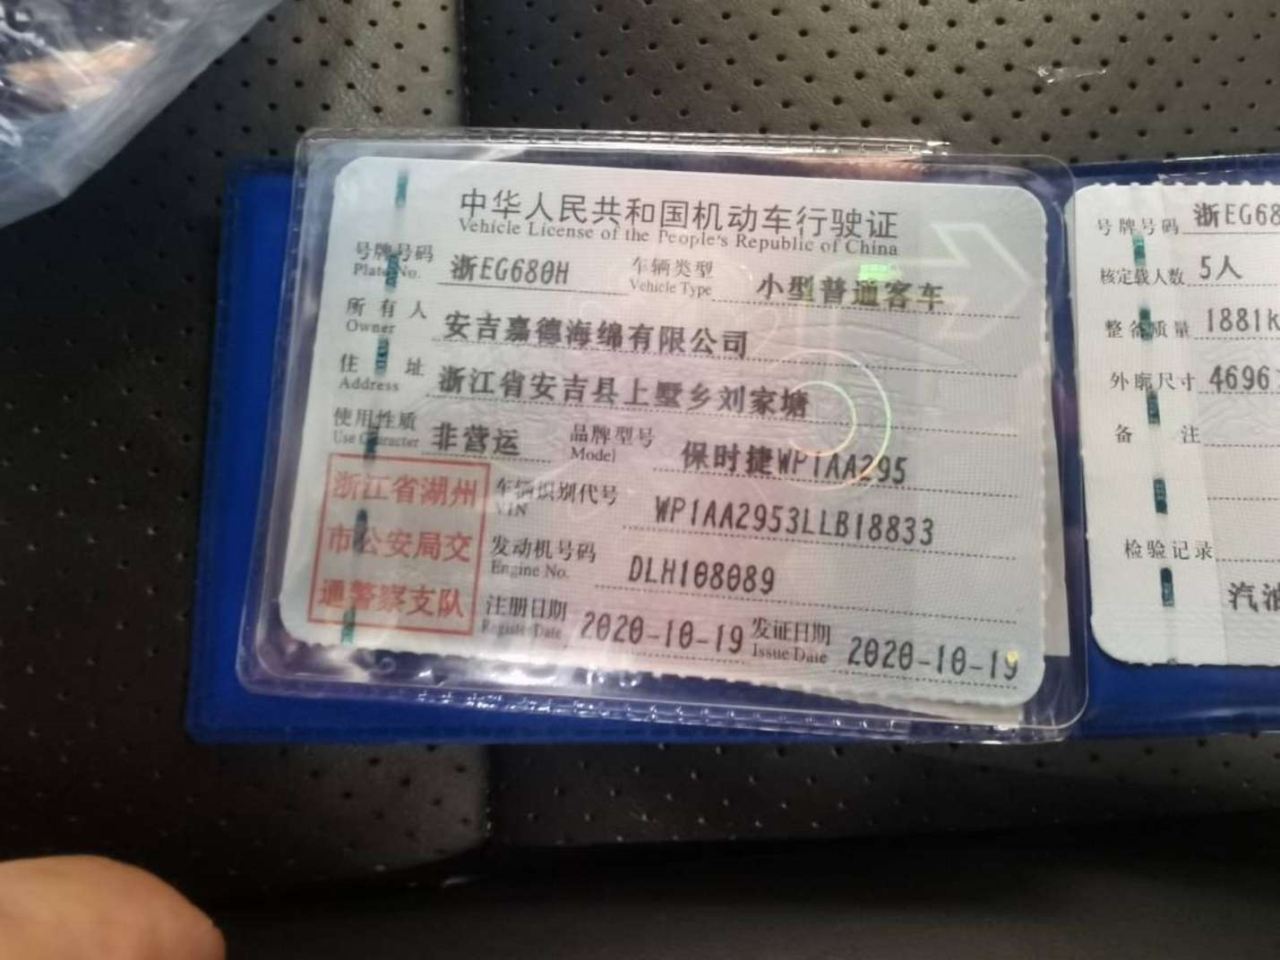 中华人民共和国机动车行驶证
Vehicle License of the People's Republic of China
号牌号码 浙EG680H 车辆类型 小型普通客车
Plate No. Vehicle Type
所有人 安吉嘉德海绵有限公司
Owner
住址 浙江省安吉县上墅乡刘家塘
Address
使用性质 非营运 品牌型号 保时捷WP1AA295
Use Character Model
车辆识别代号 WP1AA2953LLB18833
VIN
发动机号码 DLH108089
Engine No.
注册日期 2020-10-19 发证日期 2020-10-19
Register Date Issue Date
浙江省湖州
市公安局交
通警察支队
号牌号码 浙EG68
核定载人数 5人
整备质量 1881k
外廓尺寸 4696
备注
检验记录
汽油